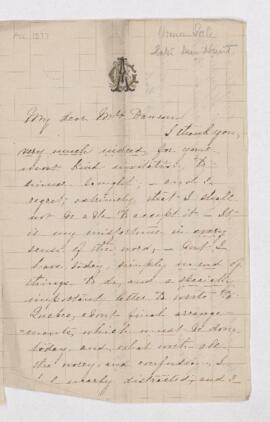 My dear Mrs Dawson
I thank you,
very much indeed, for your
most kind invitation to
dinner tonight; - and I
regret extremely that I shall
not be able to accept it - It
is my misfortune in every
sense of the word, - but I
have, today, simply no end of
things to do, and a specially
important letter to write to
Quebec, about final arrange-
-ments, which must be done
today, and what with all
the worry and confusion, I
nearly distracted, and I